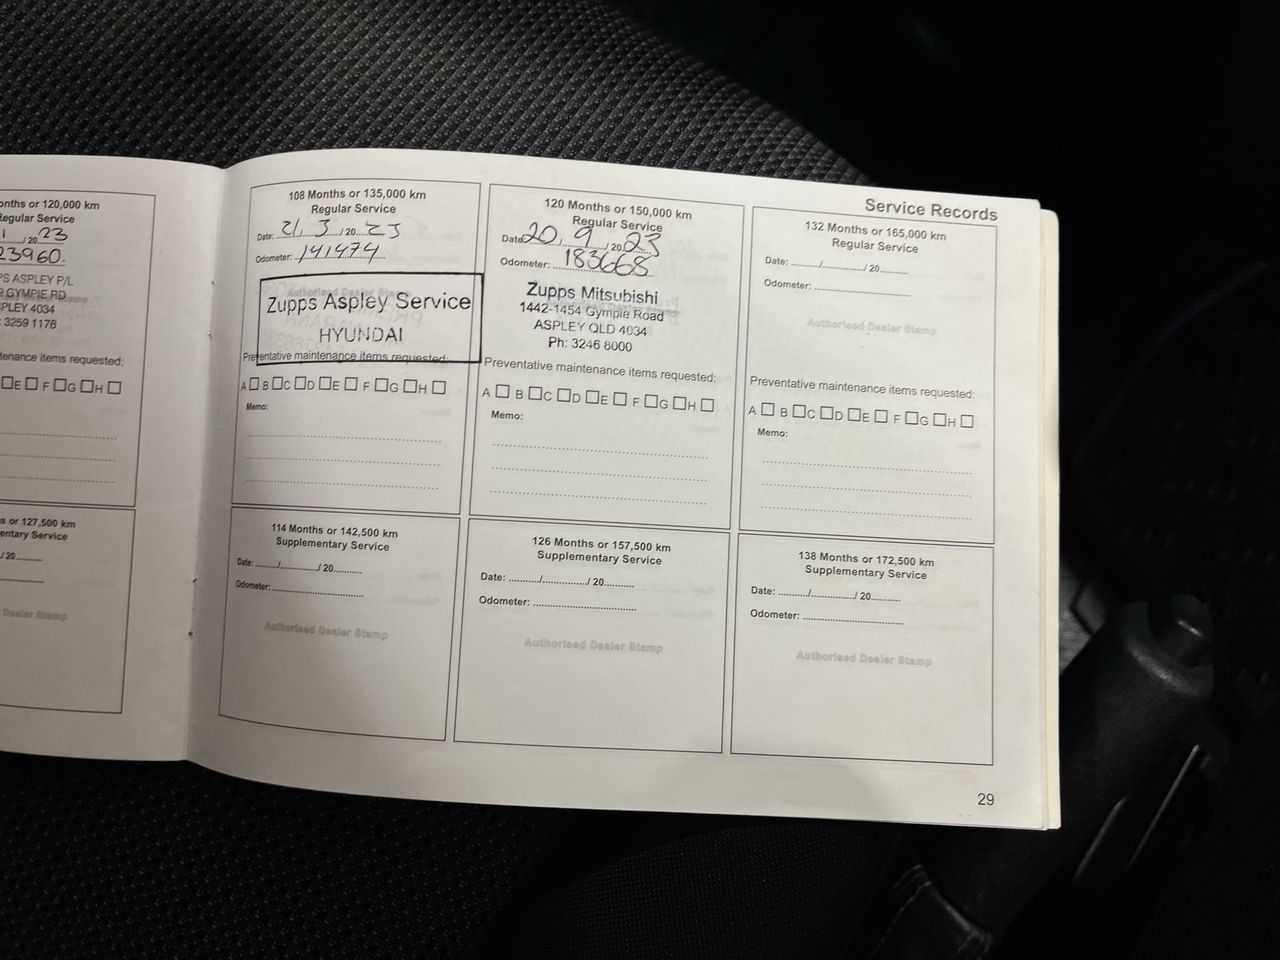 Service Records
nths or 120,000 km
Regular Service
1 / 20 23
23960.
PS ASPLEY P/L
GYMPIE RD
PLEY 4034
: 3259 1176
tenance items requested:
E F G H
s or 127,500 km
entary Service
/ 20
Dealer Stamp
108 Months or 135,000 km
Regular Service
Date: 21, 3 / 20 23
Odometer: 141474
Authorised Dealer Stamp
Zupps Aspley Service
HYUNDAI
Preventative maintenance items requested:
A B C D E F G H
Memo:
114 Months or 142,500 km
Supplementary Service
Date: / / 20
Odometer:
Authorised Dealer Stamp
120 Months or 150,000 km
Regular Service
Date: 20, 9 / 20 23
Odometer: 183668
Zupps Mitsubishi
1442-1454 Gympie Road
ASPLEY QLD 4034
Ph: 3246 8000
Preventative maintenance items requested:
A B C D E F G H
Memo:
126 Months or 157,500 km
Supplementary Service
Date: / / 20
Odometer:
Authorised Dealer Stamp
132 Months or 165,000 km
Regular Service
Date: / / 20
Odometer:
Authorised Dealer Stamp
Preventative maintenance items requested:
A B C D E F G H
Memo:
138 Months or 172,500 km
Supplementary Service
Date: / / 20
Odometer:
Authorised Dealer Stamp
29